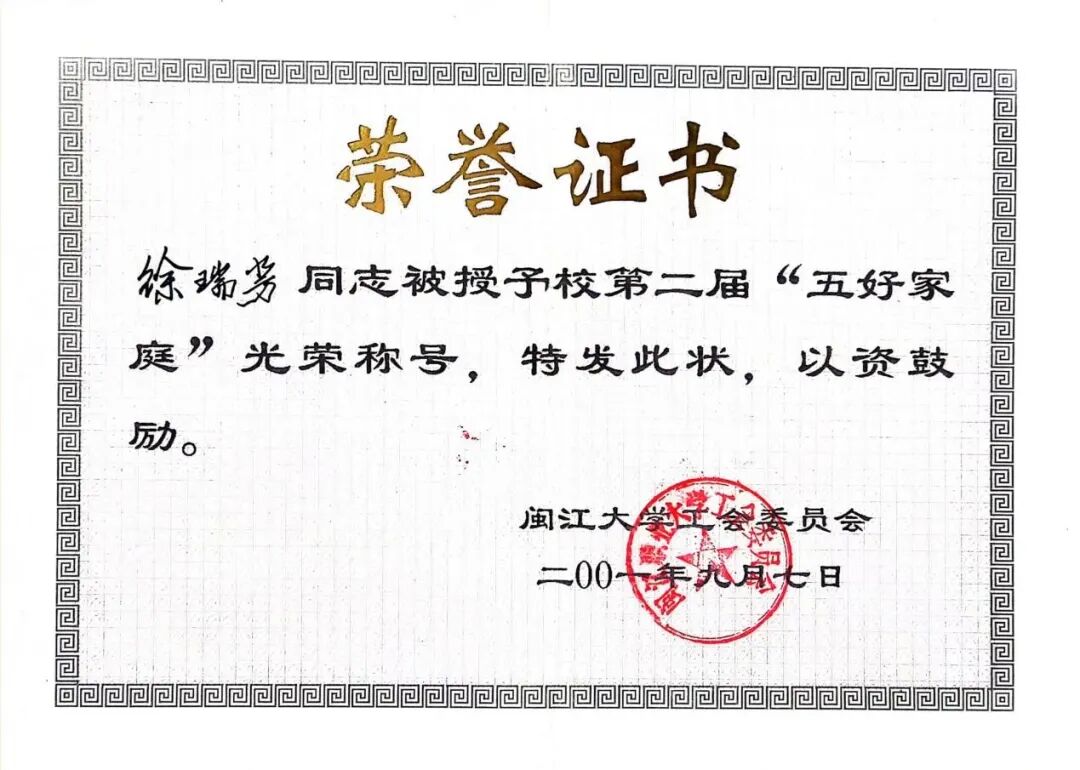 荣誉证书
徐瑞芳 同志被授予校第二届“五好家
庭”光荣称号，特发此状，以资鼓
励。
闽江大学工会委员会
二00一年九月七日